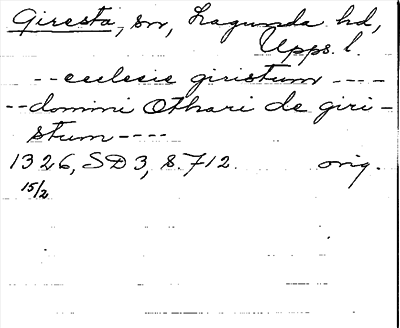 Giresta, sn, Lagunda hd,
Upps. l.
-- ecclesie giristum ----
-- domini Othari de giri-
stum ----
1326, SD 3, s. 712. orig.
15/2